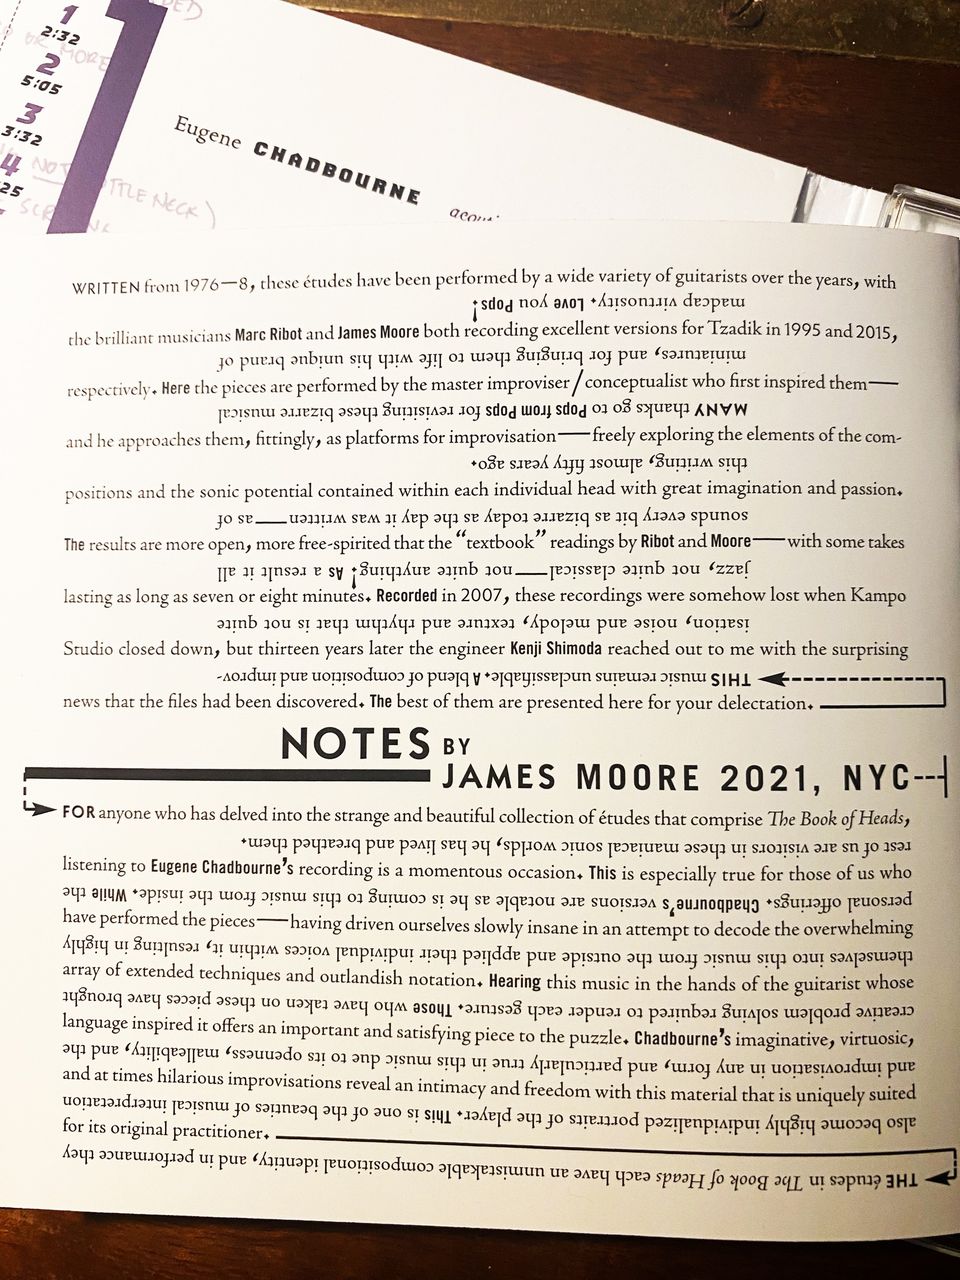 1
2:32
OR MORE
2
5:05
3
3:32
4
25
NOT
TTLE NECK)
1
Eugene CHADBOURNE
WRITTEN from 1976—8, these études have been performed by a wide variety of guitarists over the years, with
the brilliant musicians Marc Ribot and James Moore both recording excellent versions for Tzadik in 1995 and 2015,
respectively. Here the pieces are performed by the master improviser/conceptualist who first inspired them—
and he approaches them, fittingly, as platforms for improvisation—freely exploring the elements of the com-
positions and the sonic potential contained within each individual head with great imagination and passion.
The results are more open, more free-spirited that the “textbook” readings by Ribot and Moore—with some takes
lasting as long as seven or eight minutes. Recorded in 2007, these recordings were somehow lost when Kampo
Studio closed down, but thirteen years later the engineer Kenji Shimoda reached out to me with the surprising
news that the files had been discovered. The best of them are presented here for your delectation.
THIS music remains unclassifiable. A blend of composition and improv-
isation, noise and melody, texture and rhythm that is not quite
jazz, not quite classical—not quite anything! As a result it all
sounds every bit as bizarre today as the day it was written—as of
this writing, almost fifty years ago.
MANY thanks go to Pops from Pops for revisiting these bizarre musical
miniatures, and for bringing them to life with his unique brand of
madcap virtuosity. Love you Pops!
NOTES BY
JAMES MOORE 2021, NYC
FOR anyone who has delved into the strange and beautiful collection of études that comprise The Book of Heads,
listening to Eugene Chadbourne’s recording is a momentous occasion. This is especially true for those of us who
have performed the pieces—having driven ourselves slowly insane in an attempt to decode the overwhelming
array of extended techniques and outlandish notation. Hearing this music in the hands of the guitarist whose
language inspired it offers an important and satisfying piece to the puzzle. Chadbourne’s imaginative, virtuosic,
and at times hilarious improvisations reveal an intimacy and freedom with this material that is uniquely suited
for its original practitioner.
THE études in The Book of Heads each have an unmistakable compositional identity, and in performance they
also become highly individualized portraits of the player. This is one of the beauties of musical interpretation
and improvisation in any form, and particularly true in this music due to its openness, malleability, and the
creative problem solving required to render each gesture. Those who have taken on these pieces have brought
themselves into this music from the outside and applied their individual voices within it, resulting in highly
personal offerings. Chadbourne’s versions are notable as he is coming to this music from the inside. While the
rest of us are visitors in these maniacal sonic worlds, he has lived and breathed them.